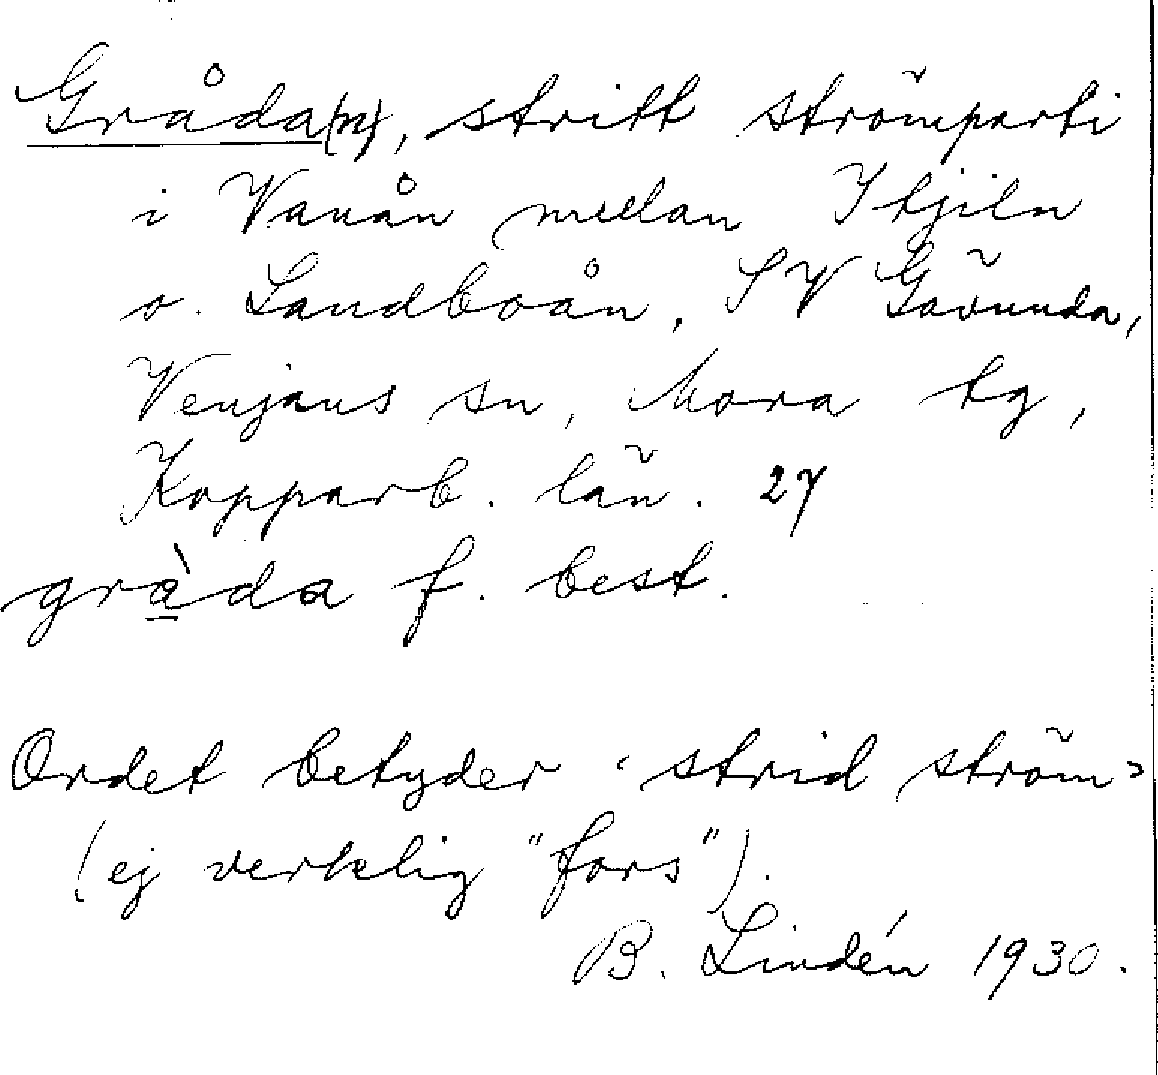 Gråda(n), stritt strömparti
i Vanån mellan Itjiln
o. Landboån, SV Gävunda,
Venjans sn, Mora tg,
Kopparb. län. 27
grà̱da f. best.
Ordet betyder ‘strid ström’
(ej verklig "fors").
B. Lindén 1930.